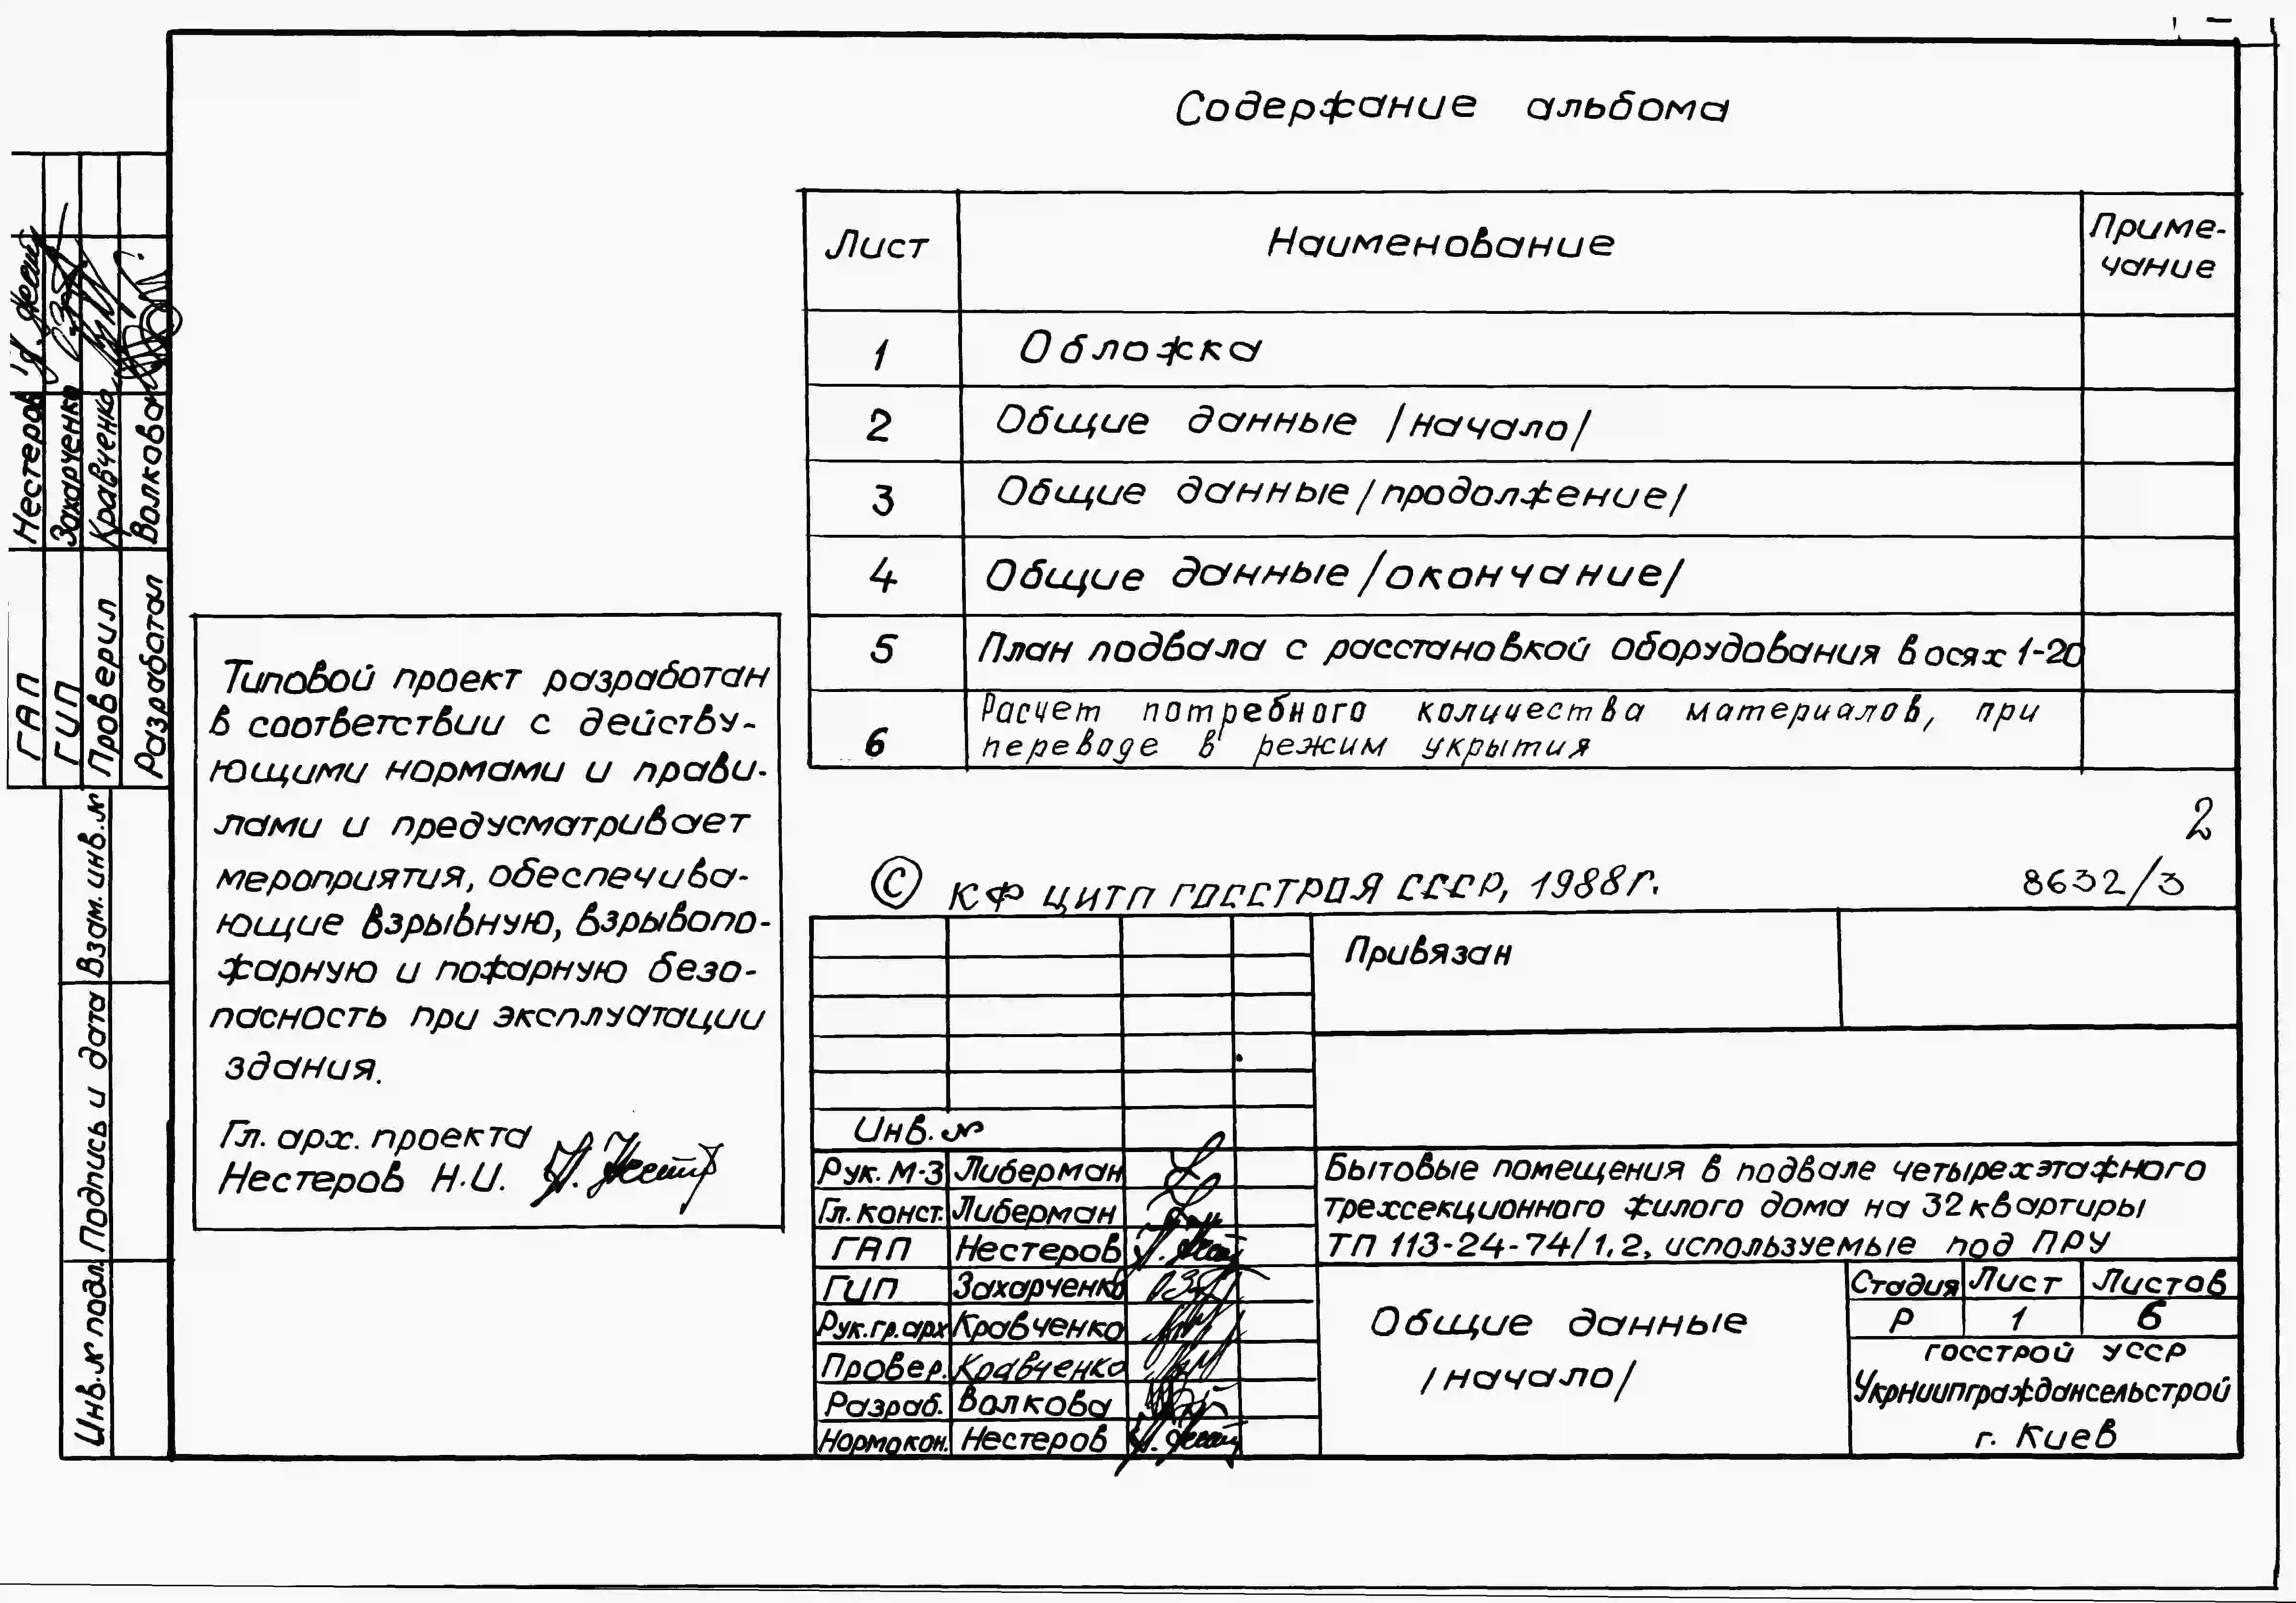 Содержание альбома
Лист Наименование Приме-
чание
1 Обложка
2 Общие данные /начало/
3 Общие данные /продолжение/
4 Общие данные /окончание/
5 План подвала с расстановкой оборудования в осях 1-20
6 Расчет потребного количества материалов, при
переводе в режим укрытия
Типовой проект разработан
в соответствии с действу-
ющими нормами и прави-
лами и предусматривает
мероприятия, обеспечива-
ющие взрывную, взрывопо-
жарную и пожарную безо-
пасность при эксплуатации
здания.
Гл. арх. проекта
Нестеров Н.И.
2
© КФ ЦИТП ГОССТРОЯ СССР, 1988г.
8632/3
Привязан
Инв. №
Рук. М-3 Либерман
Гл. конст. Либерман
ГАП Нестеров
ГИП Захарченко
Рук.гр.арх Кравченко
Провер. Кравченко
Разраб. Волкова
Нормокон. Нестеров
Бытовые помещения в подвале четырехэтажного
трехсекционного жилого дома на 32 квартиры
ТП 113-24-74/1.2, используемые под ПРУ
Общие данные
/начало/
Стадия Лист Листов
Р 1 6
госстрой УССР
Укрниипграждансельстрой
г. Киев
ГАП Нестеров
ГИП Захарченко
Проверил Кравченко
Разработал Волкова
Взам. инв. №
Подпись и дата
Инв. № подл.